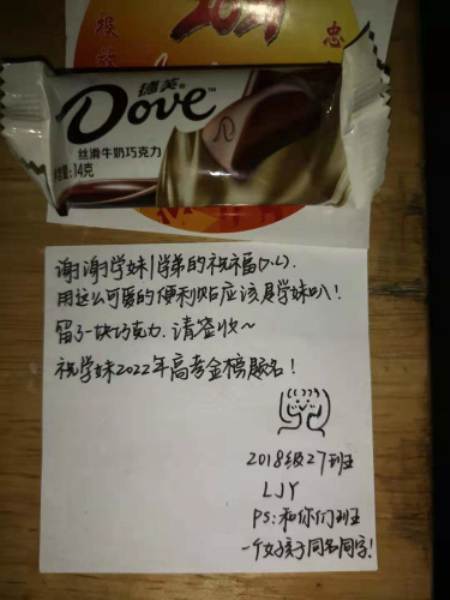 2021
忠
德芙
Dove
丝滑牛奶巧克力
14克
谢谢学妹/学弟的祝福(>.<).
用这么可爱的便利贴应该是学妹叭!
留了一块巧克力,请签收~
祝学妹2022年高考金榜题名!
2018级27班
LJY
PS:和你们班
一个女孩子同名同字!